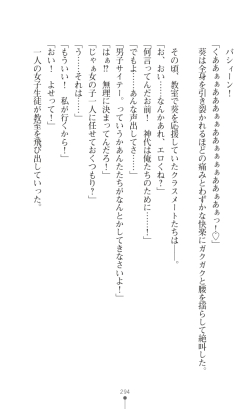 バシィーン！
「くああぁぁぁああぁぁぁあぁぁぁああぁぁ……ぁぁっ♡」
葵は全身を引き裂かれるほどの痛みとわずかな快楽にガクガクと腰を揺らして絶叫した。
その頃、教室で葵を応援していたクラスメートたちは──。
「お、おい……なんかあれ、エロくね？」
「何言ってんだお前！　神代は俺たちのために……！」
「でもよ……あんな声出してさ……」
「男子サイテー！っていうかあんたたちがなんとかしてきなさいよ！」
「はぁ!?　無理に決まってんだろ！」
「じゃぁ女の子一人に任せておくつもり？」
「う……それは……」
「もういい！　私が行くから！」
「おい！　よせって！」
一人の女子生徒が教室を飛び出していった。
294